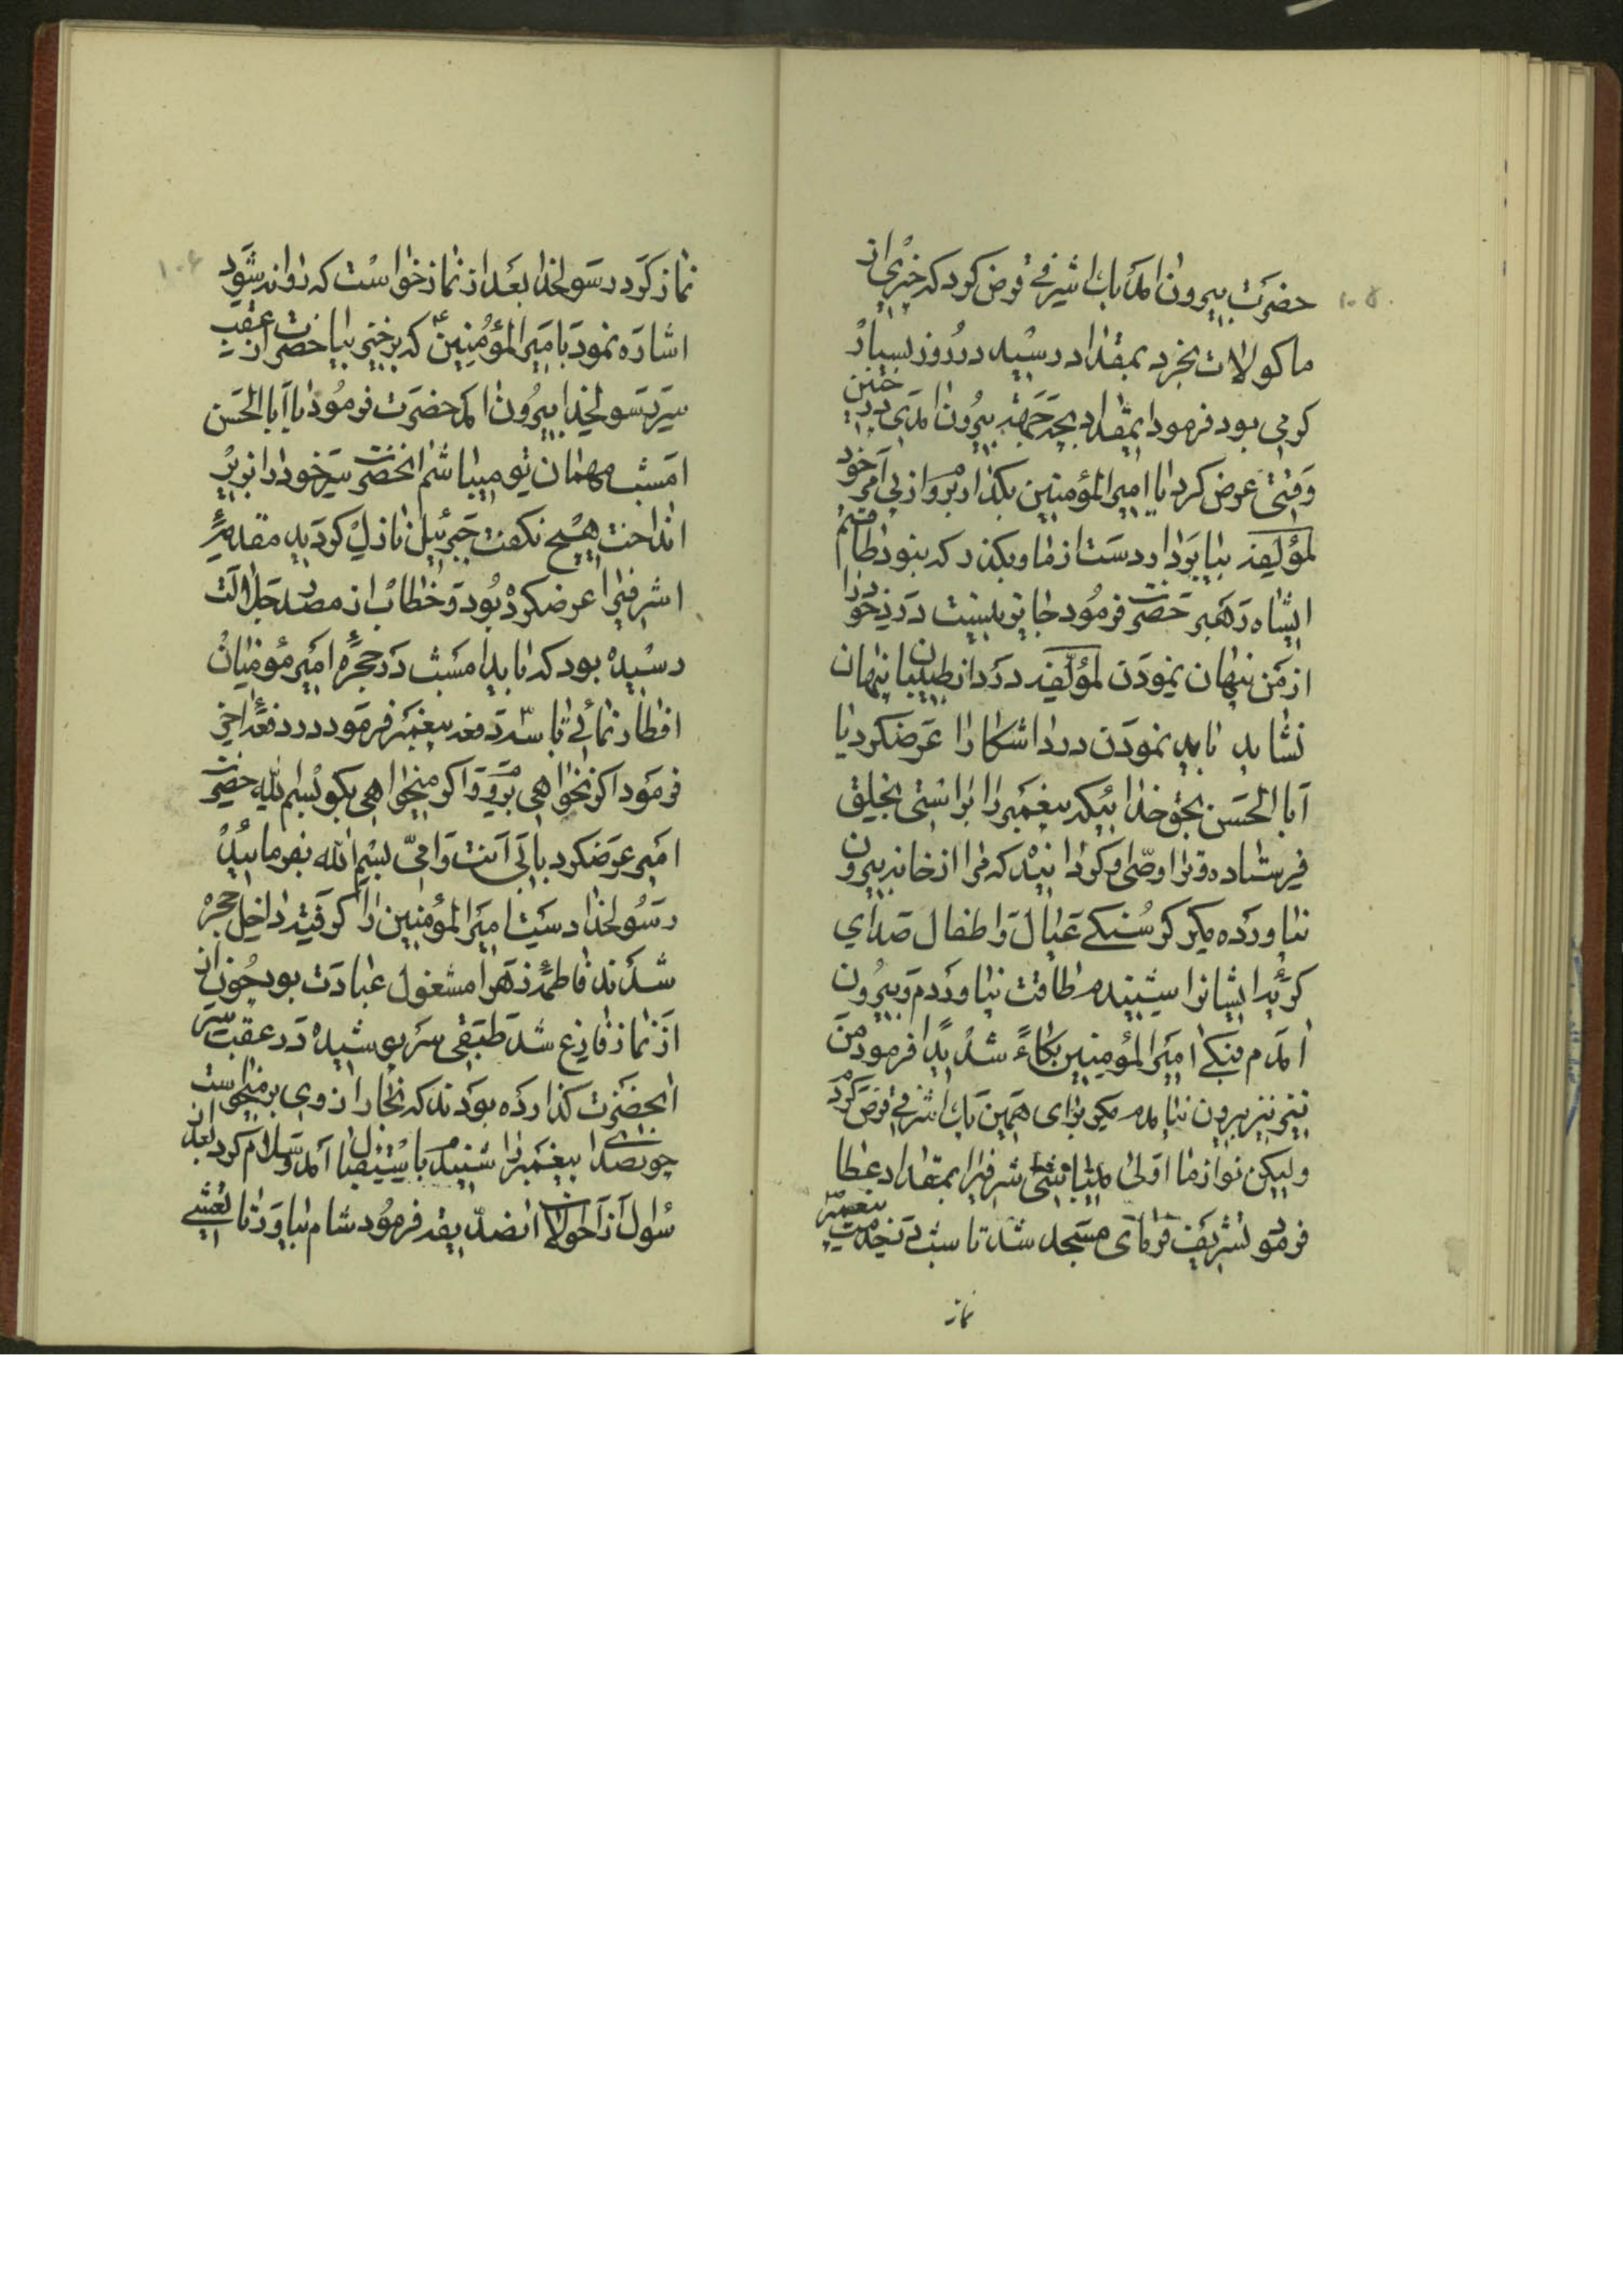 ۱۰۵
حضرت بیرون امد یاب اشرفی قرض کرد که چیزی از
ماکولات بخرد بمقداد رسید در روز بسیار
کرمی بود فرمود ایمقداد بچه جهة بیرون امدی در چنین
وقتی عرض کرد یا امیرالمؤمنین بکذار بروم از پی امر خود
لمؤلفه بیا بردار دست از ما و بکذر که بنود طاقتم
ایشاه رهبر حضرت فرمود جایز نیست درد خود را
از من پنهان نمودن لمؤلفه درد از طبیبان پنهان
نشاید باید نمودن درد اشکارا عرضکرد یا
ابا الحسن بحق خدائیکه پیغمبر را براستی بخلق
فرستاده و ترا وصی او کردانید که مرا از خانه بیرون
نیاورده مکر کرسنکی عیال و اطفال صدای
کریه ایشانرا شنیدم طاقت نیاوردم و بیرون
امدم فبکی امیرالمؤمنین بکاءً شدیدًا فرمود من
نیز بیرون نیامدم مکر برای همین یاب اشرفی قرض کردم
ولیکن تو از ما اولی میباشی اشرفیرا بمقداد عطا
فرمود تشریف فرمای مسجد شد تا شب در خدمت پیغمبر
نماز
۱۰۶
نماز کرد رسولخدا بعد از نماز خواست که روانه شود
اشاره نمود بامیرالمؤمنین ع که برخیز بیا حضرت از عقب
سر رسولخدا بیرون امد حضرت فرمود یا ابا الحسن
امشب مهمان تو میباشم انحضرت سر خود را بزیر
انداخت هیچ نکفت جبرئیل نازل کردید مقدمهٔ
اشرفیرا عرضکرده بود و خطاب از مصدر جلالت
رسیده بود که باید امشب در حجرهٔ امیر مؤمنان
افطار نمائی تا سه دفعه پیغمبر فرمود در دفعهٔ اخر
فرمود اکر نخواهی بروم و اکر میخواهی بکو بسم الله حضرت
امیر عرضکرد بابی انت و امی بسم الله بفرمائید
رسولخدا دست امیرالمؤمنین را کرفته داخل حجره
شدند فاطمهٔ زهرا مشغول عبادت بود چون از
از نماز فارغ شد طبقی سرپوشیده در عقب سر
انحضرت کذارده بودند که بخار از وی برمیخواست
چون صدای پیغمبر را شنید باستقبال امد و سلام کرد بعد از
سؤال از احوالات انصدیقه فرمود شام بیاور تا نعشی